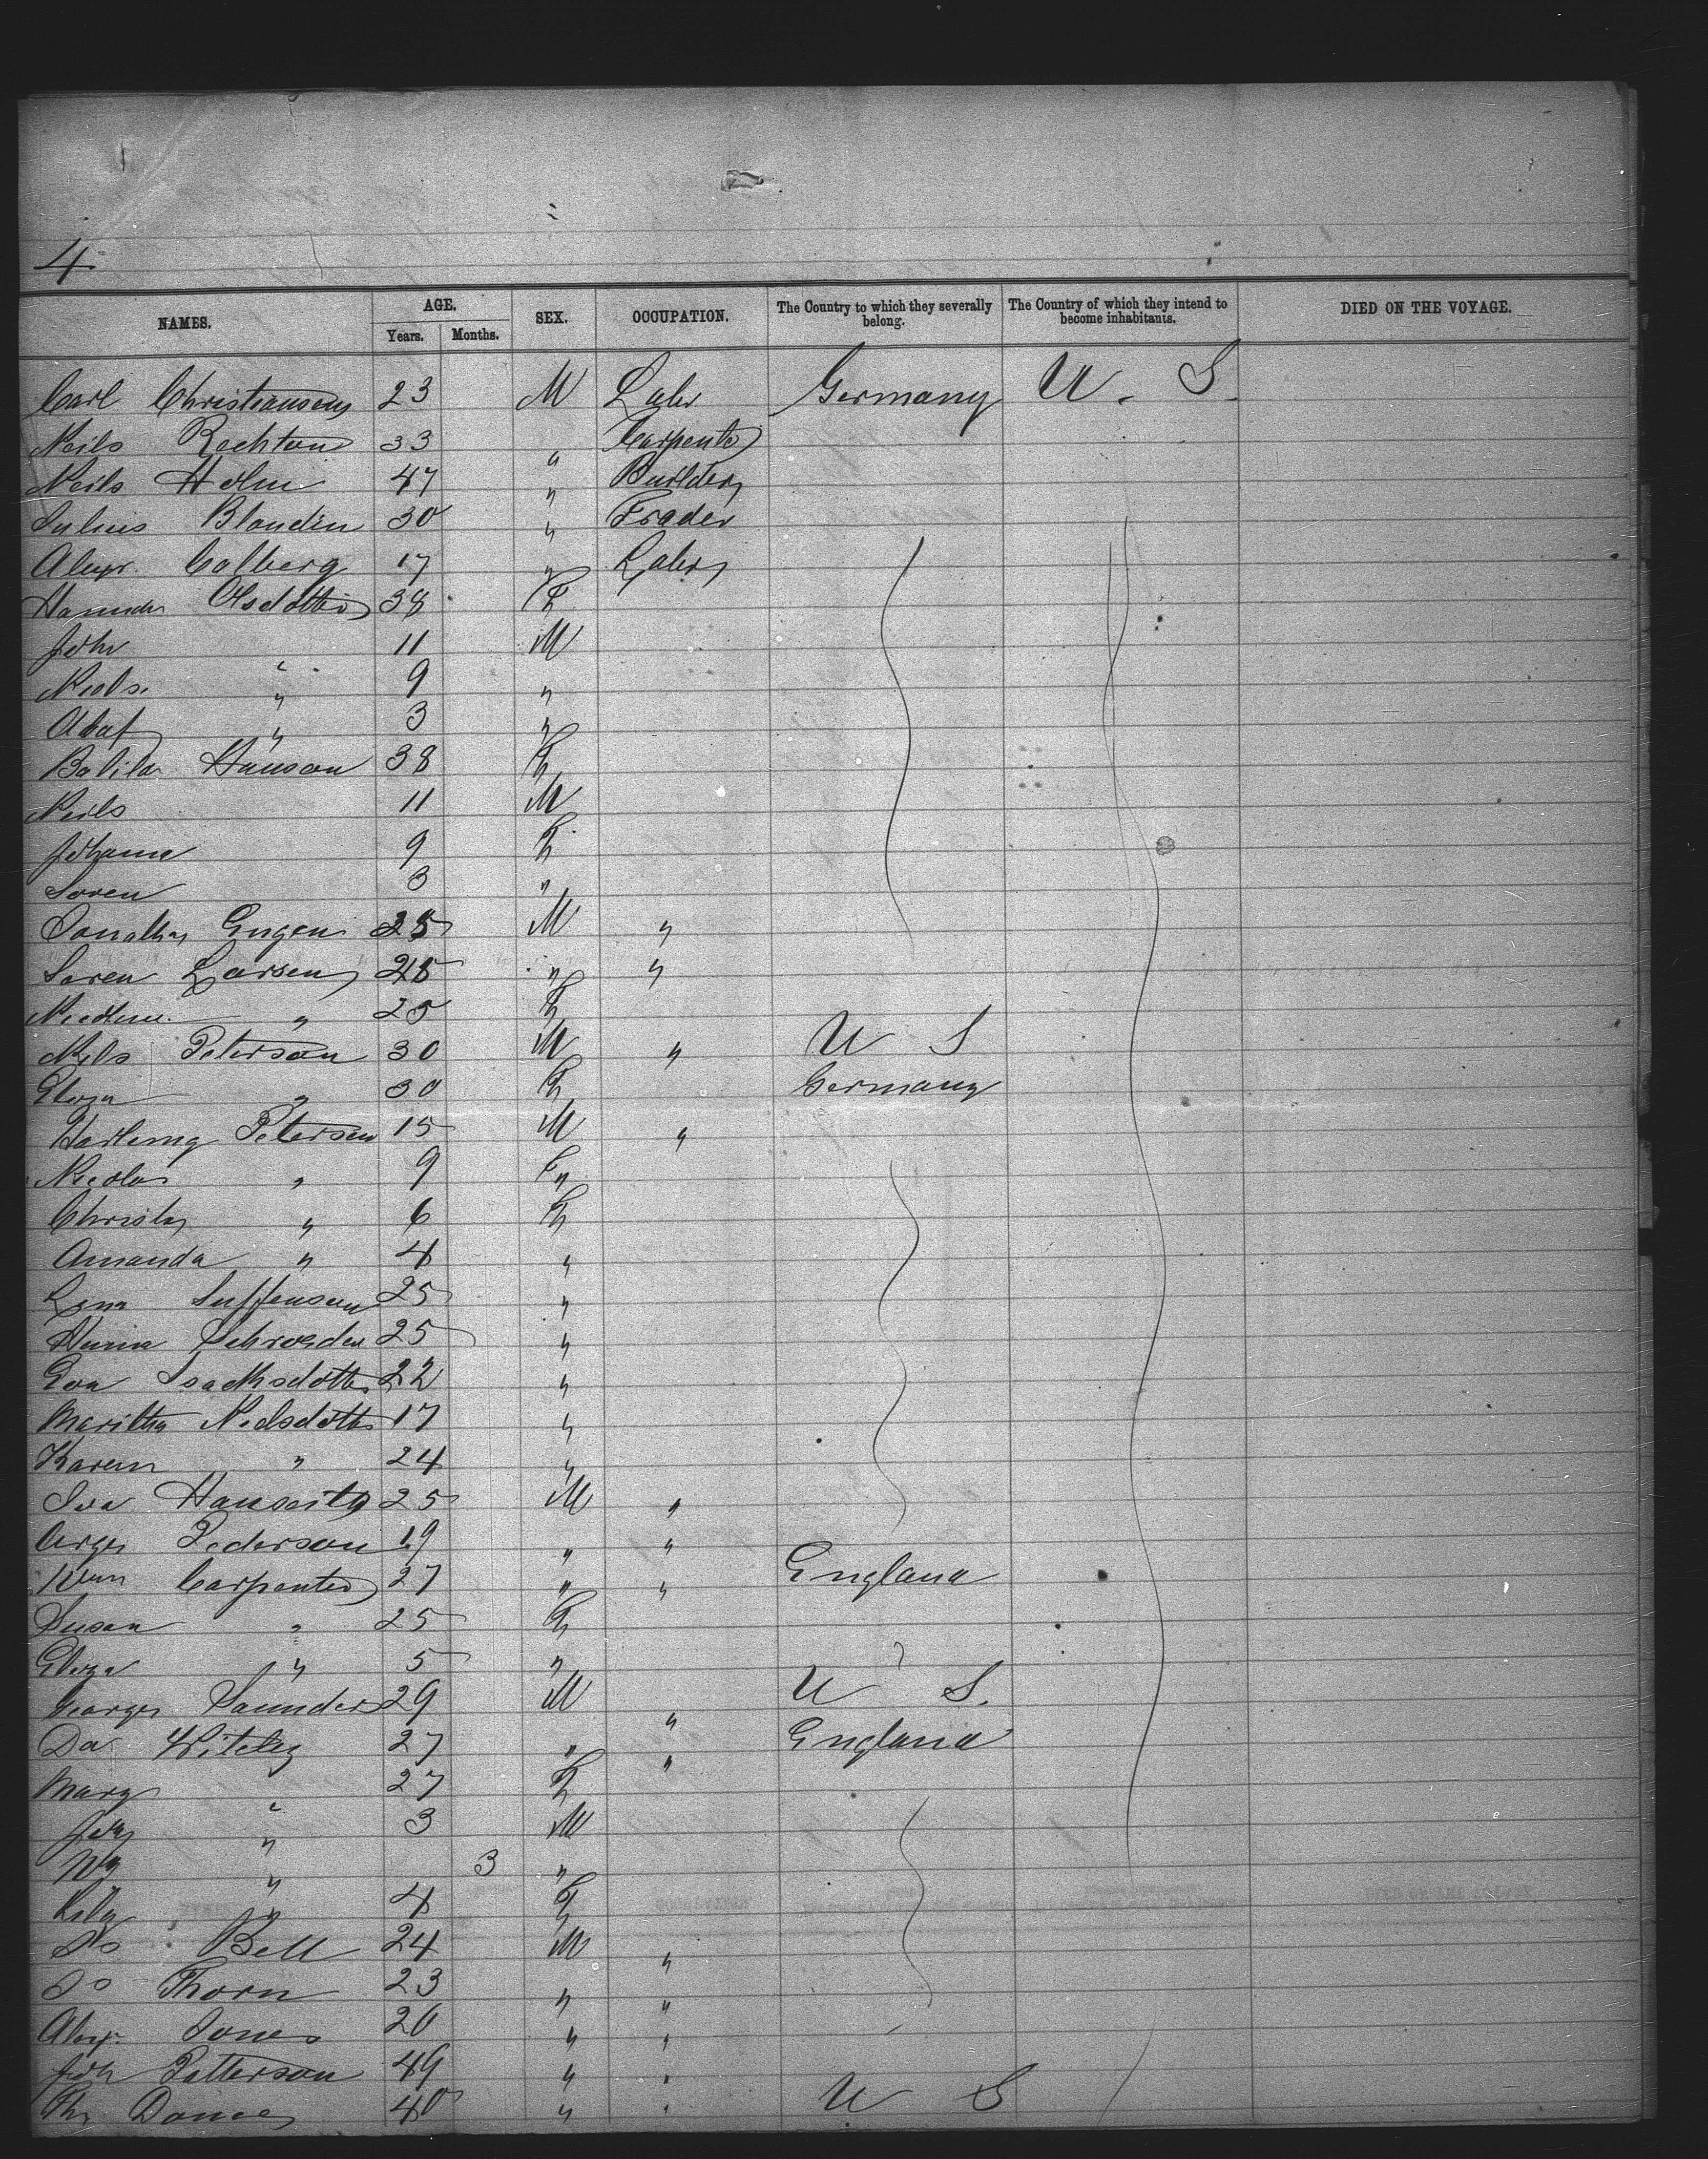 4
NAMES. AGE. SEX. OCCUPATION. The Country to which they severally belong. The Country of which they intend to become inhabitants. DIED ON THE VOYAGE.
Years. Months.
Carl Christiansen 23 M Labr Germany U. S.
Neils 33 " Carpenter
Neils Holm 47 " Builder
Julius Blondin 30 " Trader
Alexr. Colberg 17 " Labr
Olsdotter 38 F
John " 11 M
Neols. " 9 "
Olaf " 3 "
Bolila Hanson 38 F
Neils 11 M
Johana 9 F
Soren 3 "
Jonathn 25 M "
Soren Larsen 28 " "
" 25 F
Nels Peterson 30 M " U S
Eliza " 30 F Germany
Petersen 15 M "
" 9 "
Christn " 6 F
Amanda " 4 "
Lena Suffenson 25 "
Schroeder 25 "
Eva Isacksdotter 22 "
Maritha Nielsdotter 17 "
Karen " 24 "
25 M "
Pederson 19 " "
Wm Carpenter 27 " " England
Susan " 25 F
Eliza " 5 "
George Saunders 29 M " U S.
Da Witeley 27 " " England
Mary " 27 F
Jón " 3 M
Wm " 3 "
Lily " 4 F
Jno Bell 24 M "
Jo Thorn 23 " "
Alexr. Jones 20 " "
John Patterson 49 " "
Ths Dance 40 " " U S